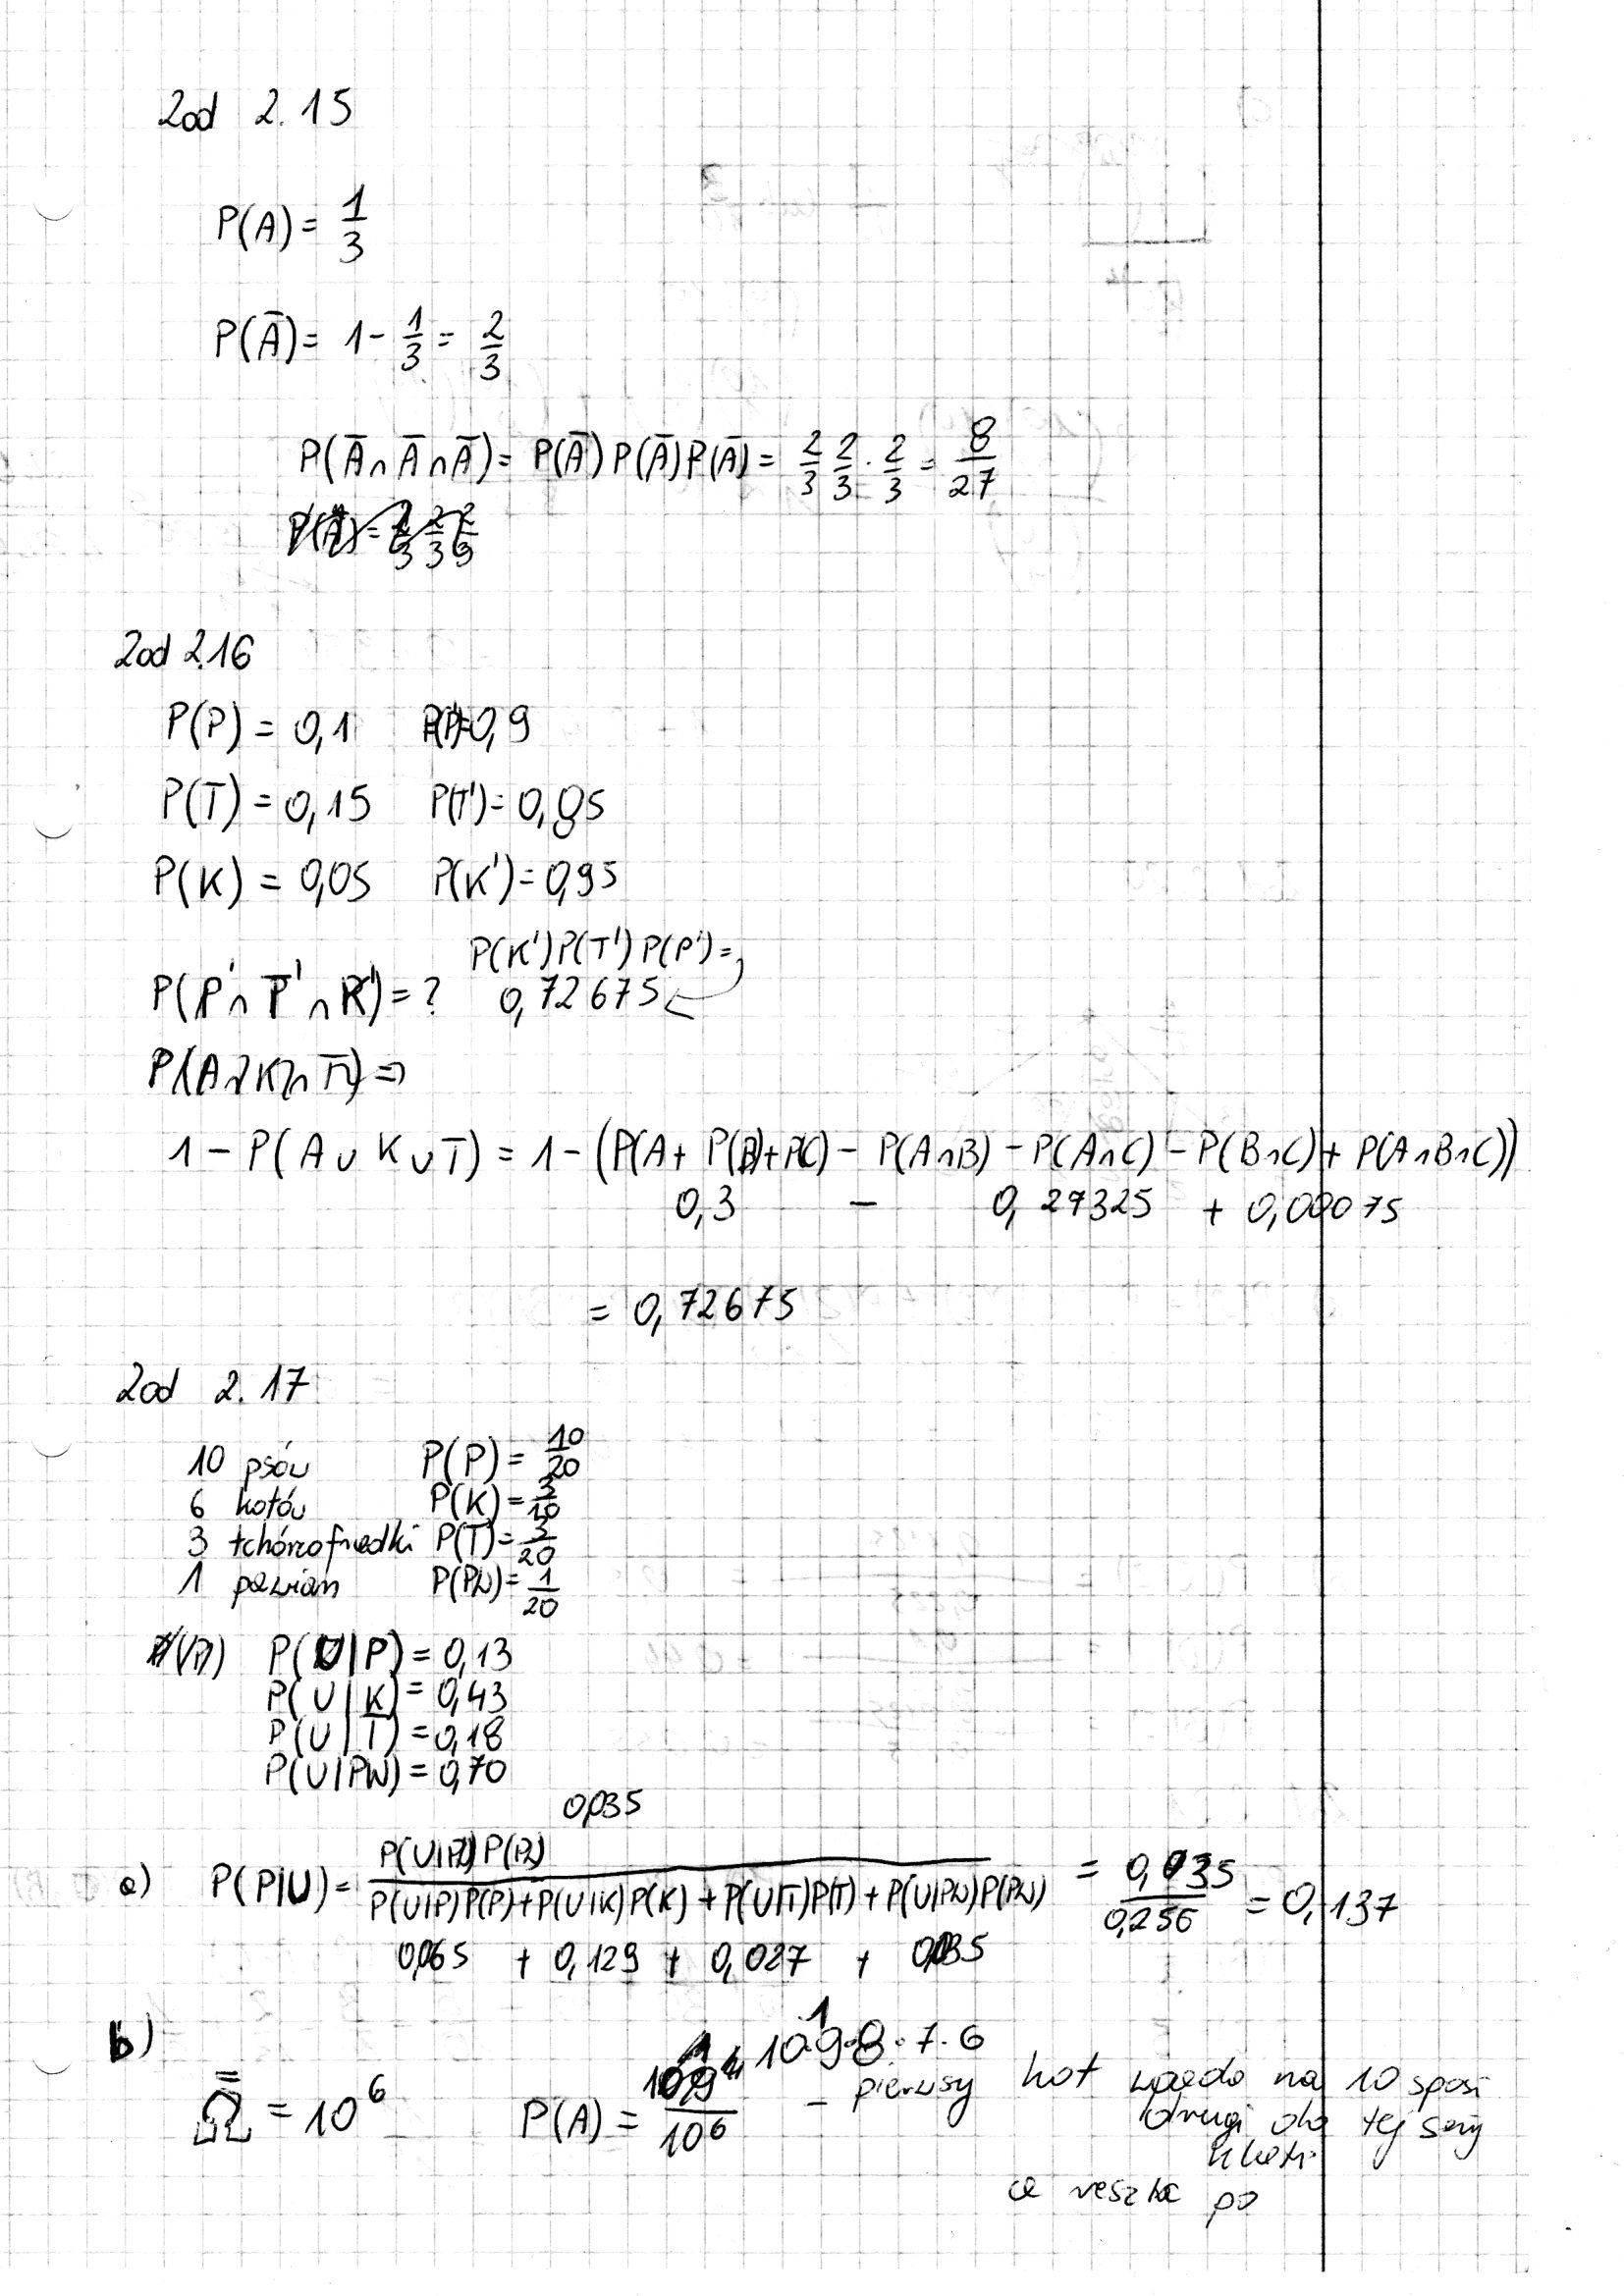 Zad 2.15
P(A) = 1/3
P(Ā) = 1 - 1/3 = 2/3
P(Ā∩Ā∩Ā) = P(Ā) P(Ā) P(Ā) = 2/3 2/3 · 2/3 = 8/27
Zad 2.16
P(P) = 0,1 P(P')=0,9
P(T) = 0,15 P(T')= 0,85
P(K) = 0,05 P(K')= 0,95
P(K')P(T')P(P') =
P(P'∩T'∩K') = ? 0,72675
1 - P(A∪K∪T) = 1 - (P(A + P(B)+P(C) - P(A∩B) - P(A∩C) - P(B∩C) + P(A∩B∩C))
0,3 - 0,27325 + 0,00075
= 0,72675
Zad 2.17
10 psów P(P) = 10/20
6 kotów P(K) = 3/10
3 tchórzofredki P(T) = 3/20
1 pawian P(PW) = 1/20
P(U|P) = 0,13
P(U|K) = 0,43
P(U|T) = 0,18
P(U|PW) = 0,70
0,035
a) P(P|U) = P(U|PW) P(PW) / P(U|P)P(P)+P(U|K)P(K) + P(U|T)P(T) + P(U|PW)P(PW) = 0,035/0,256 = 0,137
0,065 + 0,129 + 0,027 + 0,035
b)
1
10·9·8·7·6
Ω = 10^6 P(A) = /10^6 - pierwszy kot na 10 sposi
drugi do tej samj
a reszta po